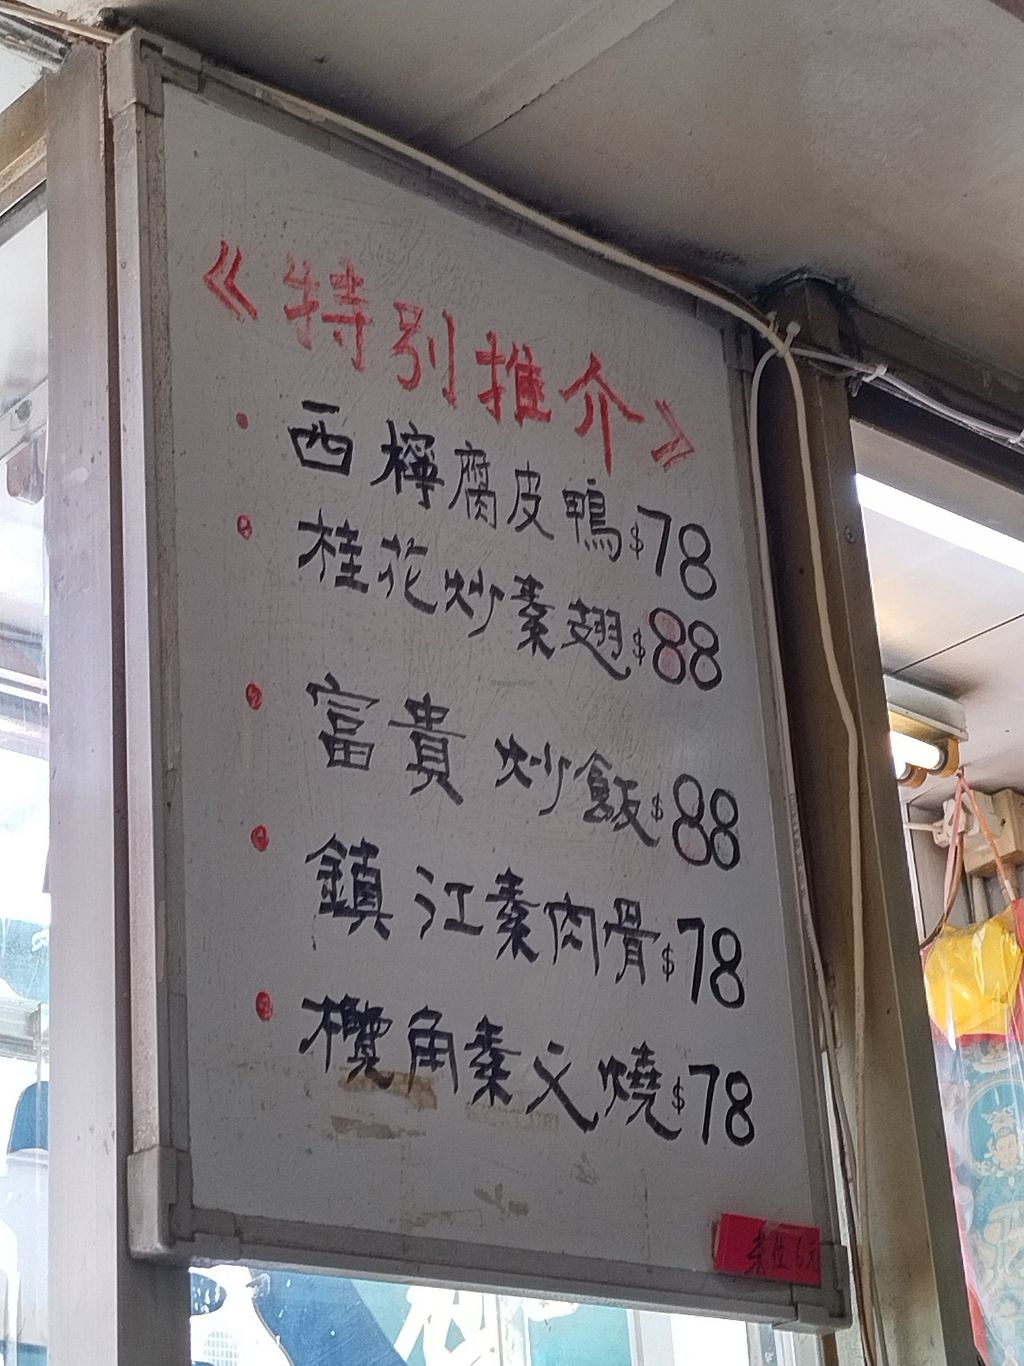 《特別推介》
西檸腐皮鴨$78
桂花炒素翅$88
富貴炒飯$88
鎮江素肉骨$78
欖角素叉燒$78
茶位6元
HappyCow